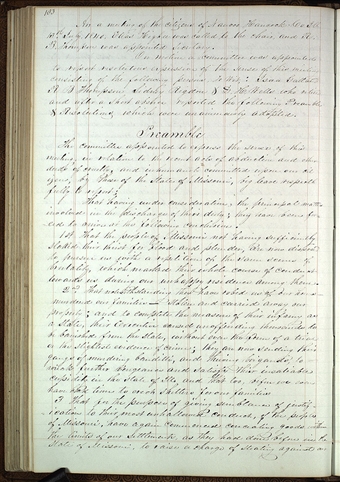 163
In a meeting of the citizens of Nauvoo Hancock Co. Ill.
13th July 1840, Elias Higbee was called to the chair, and R.
B. Thompson was appointed Secretary.
On motion a committee was appointed
to report resolutions expressive of the sense of this meeting
consisting of the following persons to wit; Isaac Galland
R. B. Thompson, Sidney Rigdon & D. H. Wells who retired
and after a short absence reported the following Preamble
& Resolutions, which were unanimously adopted.
Preamble
The committee appointed to express the sense of this
meeting, in relation to the recent acts of abduction and other
deeds of cruelty, and inhumanity committed upon our cit-
izens, by those of the State of Missouri, beg leave respect-
fully to report;
That having under consideration the principal matters
involved in the discharge of their duty; they have been for-
ced to arrive at the following conclusions.
1st That the people of Missouri not having sufficiently
slaked their thirst for blood and plunder, are now disposed
to pursue us with a repetition of the same scenes of
brutality, which marked their whole course of conduct
towards us, during our unhappy residence among them.
2nd That notwithstanding they have
murdered our families — Stolen and carried away our
property; and to complete the measure of their infamy as
a State, their Executive caused unoffending thousands to
be banished from the State, without even the form of a trial
or the slightest evidence of crime; they are now sending their
gangs of murdering banditti, and thieving brigands, to
wreak further vengeance and satisfy their insatiable
cupidity in the State of Ills, and that too, before we could
have had time to erect shelters for our families
3rd That for the purpose of giving semblance of justif-
ication to this most unhallowed conduct, of the people
of Missouri, have again commenced concealing goods within
the limits of our Settlements, as they had done before in the
State of Missouri, to raise a charge of stealing against our